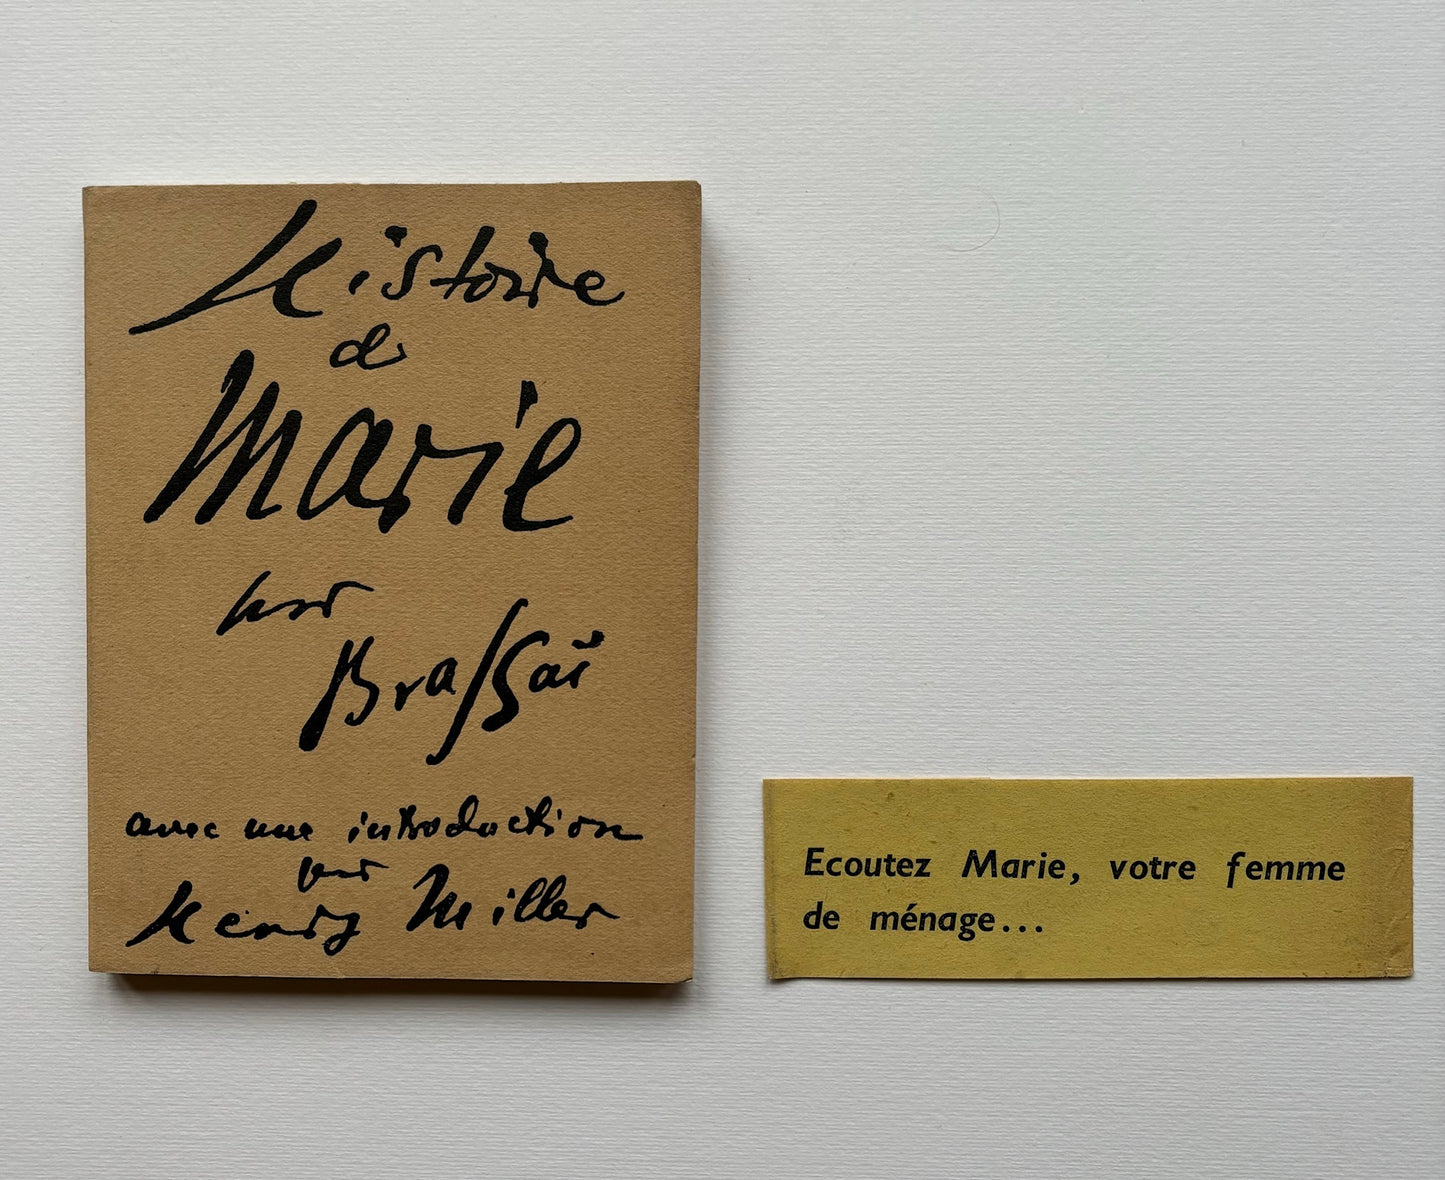 Histoire
de
Marie
par
Brassaï
avec une introduction
par
Henry Miller
Ecoutez Marie, votre femme
de ménage...